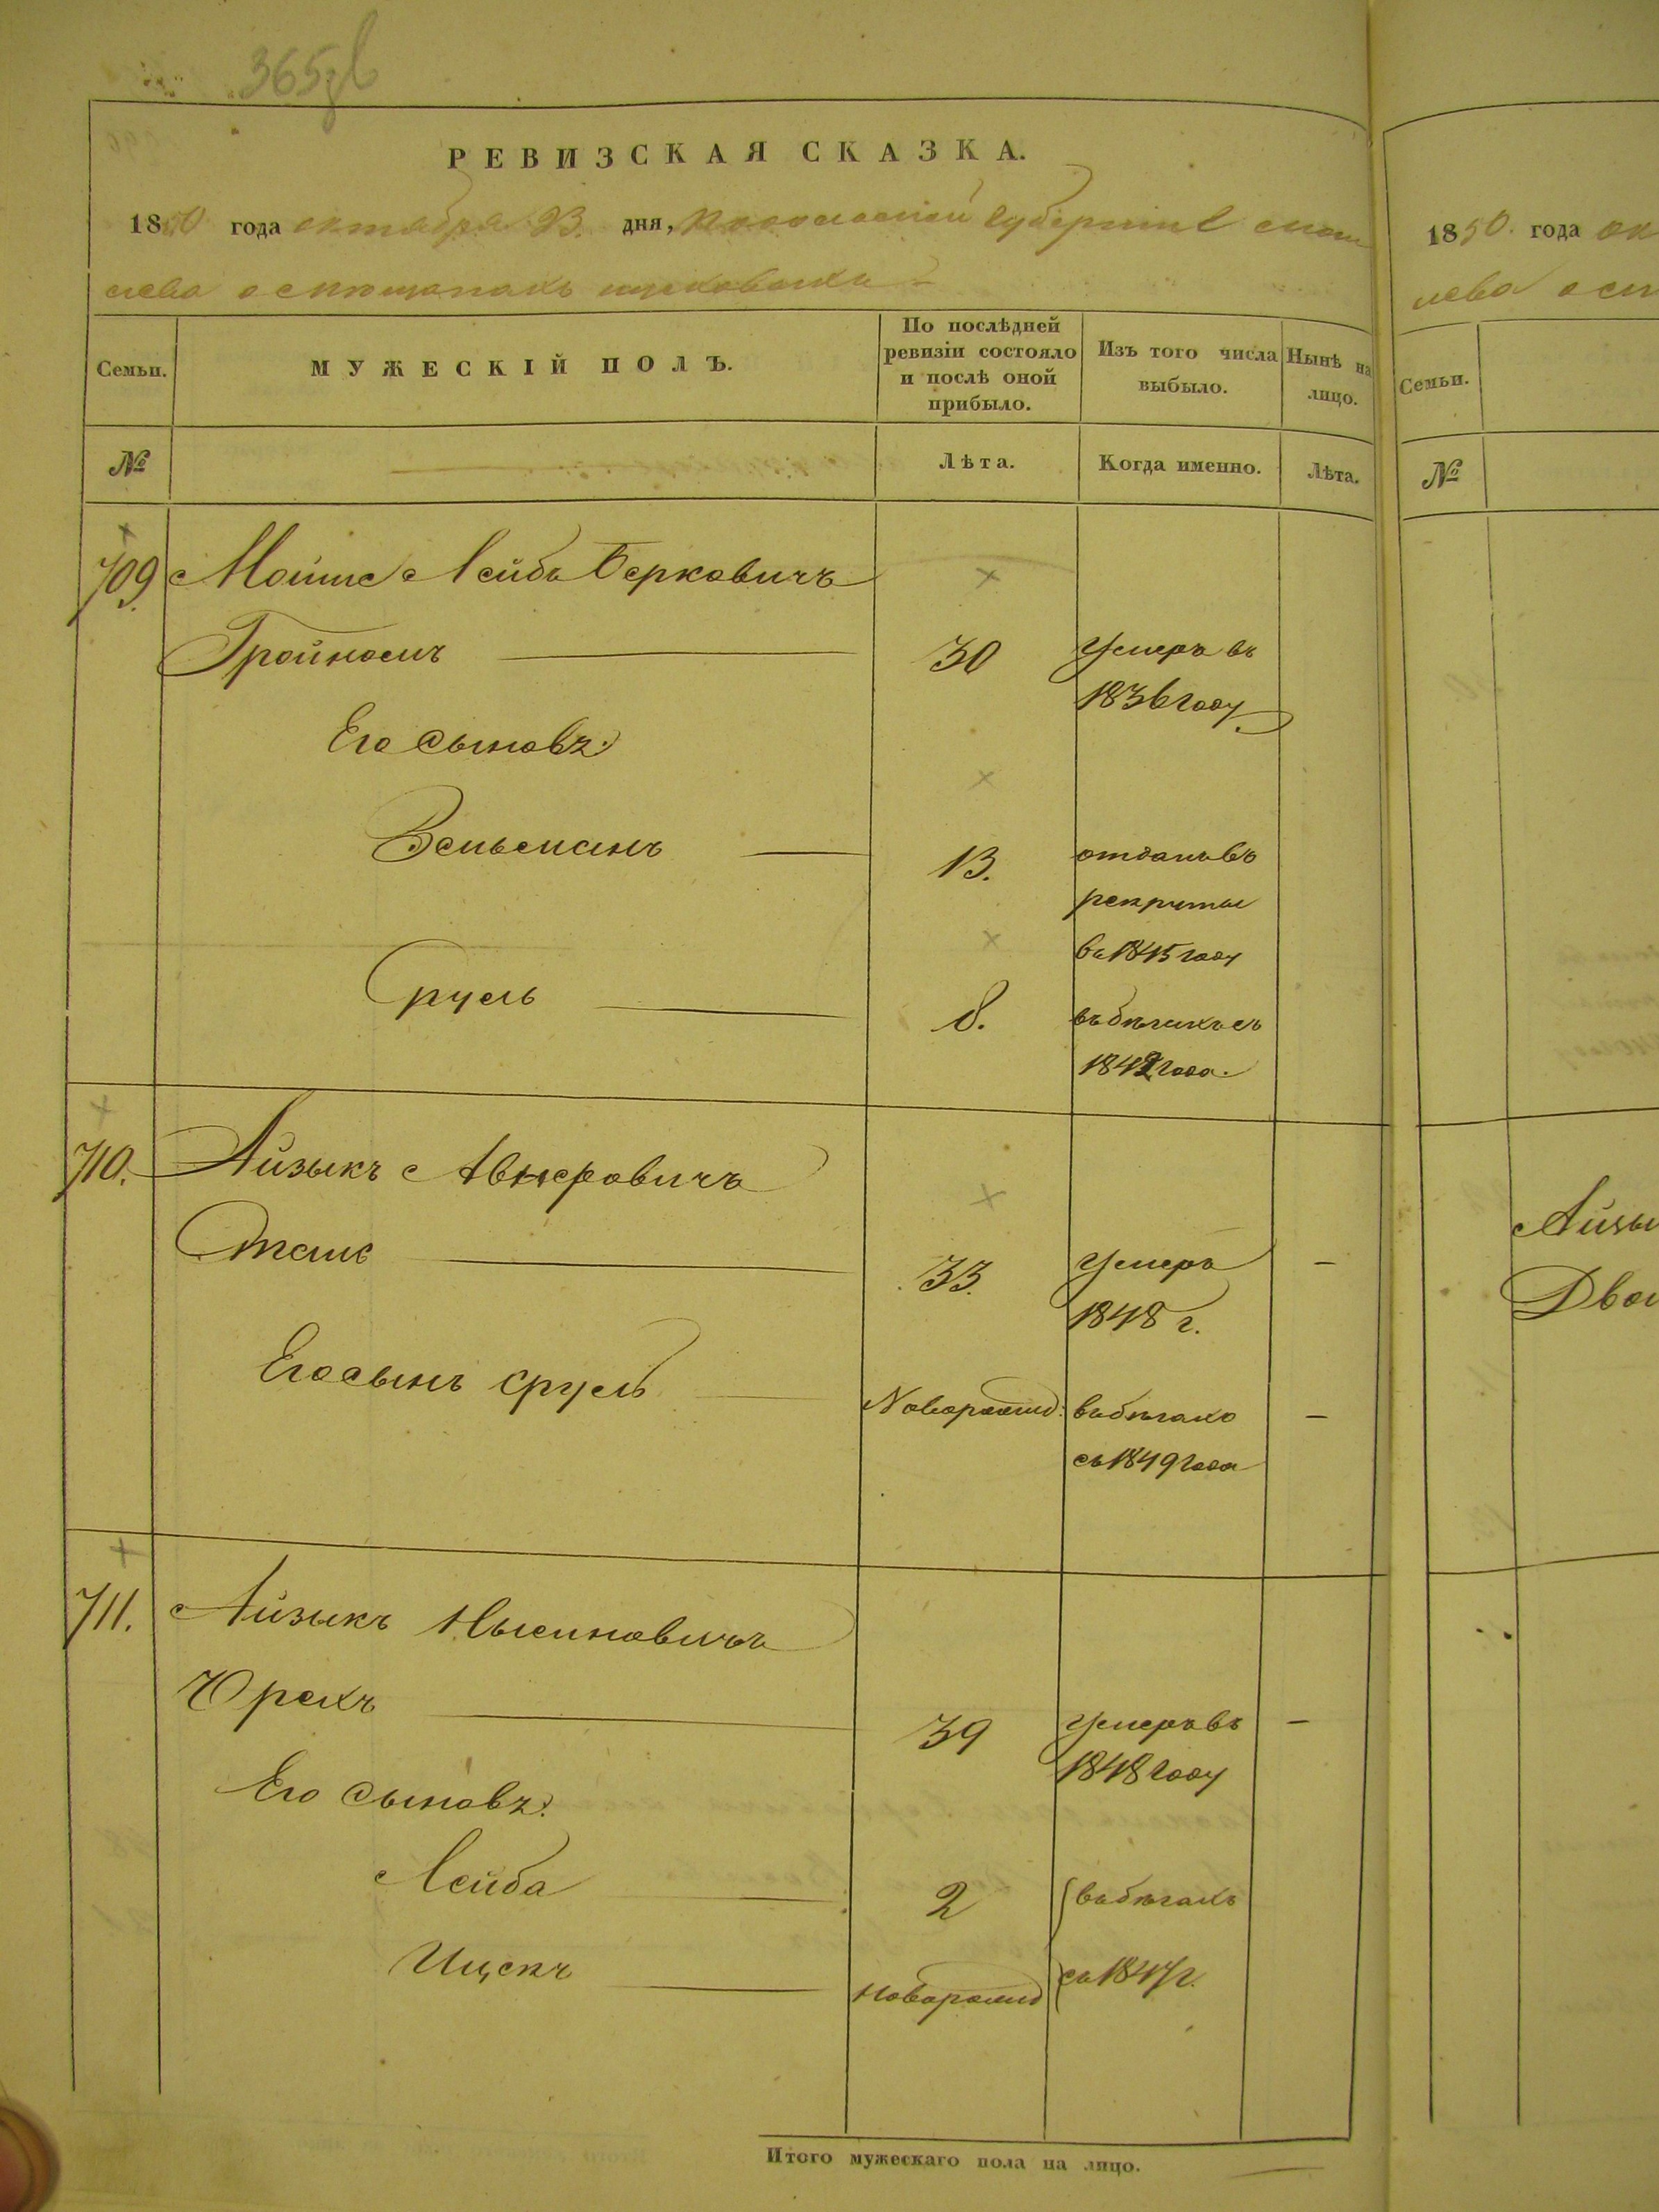 365
РЕВИЗСКАЯ СКАЗКА.
1850 года октября 23. дня, Подольской губернiи
о евреяхъ
Семьи.
МУЖЕСКIЙ ПОЛЪ.
По послѣдней ревизiи состояло и послѣ оной прибыло.
Изъ того числа выбыло.
Нынѣ на лицо.
№
Лѣта.
Когда именно.
Лѣта.
709. Мошко Лейбъ Берковичъ
Гройноемъ 30 Умеръ въ
1836 году
Его сыновъ:
Зельманъ 13. отданъ въ
рекруты
въ 1845 году
Сруль 8. въ бѣгахъ съ
1842 года.
710. Айзыкъ Авнеровичъ
33. Умеръ –
1848 г.
Его сынъ Сруль Новорожд: въ бѣгахъ –
съ 1849 года
711. Айзыкъ Нысиновичъ
39 Умеръ въ –
1848 году
Его сыновъ:
Лейба 2 въ бѣгахъ
Ицекъ новорожд съ 1847 г.
Итого мужескаго пола на лицо.
1850. года
Семьи.
№